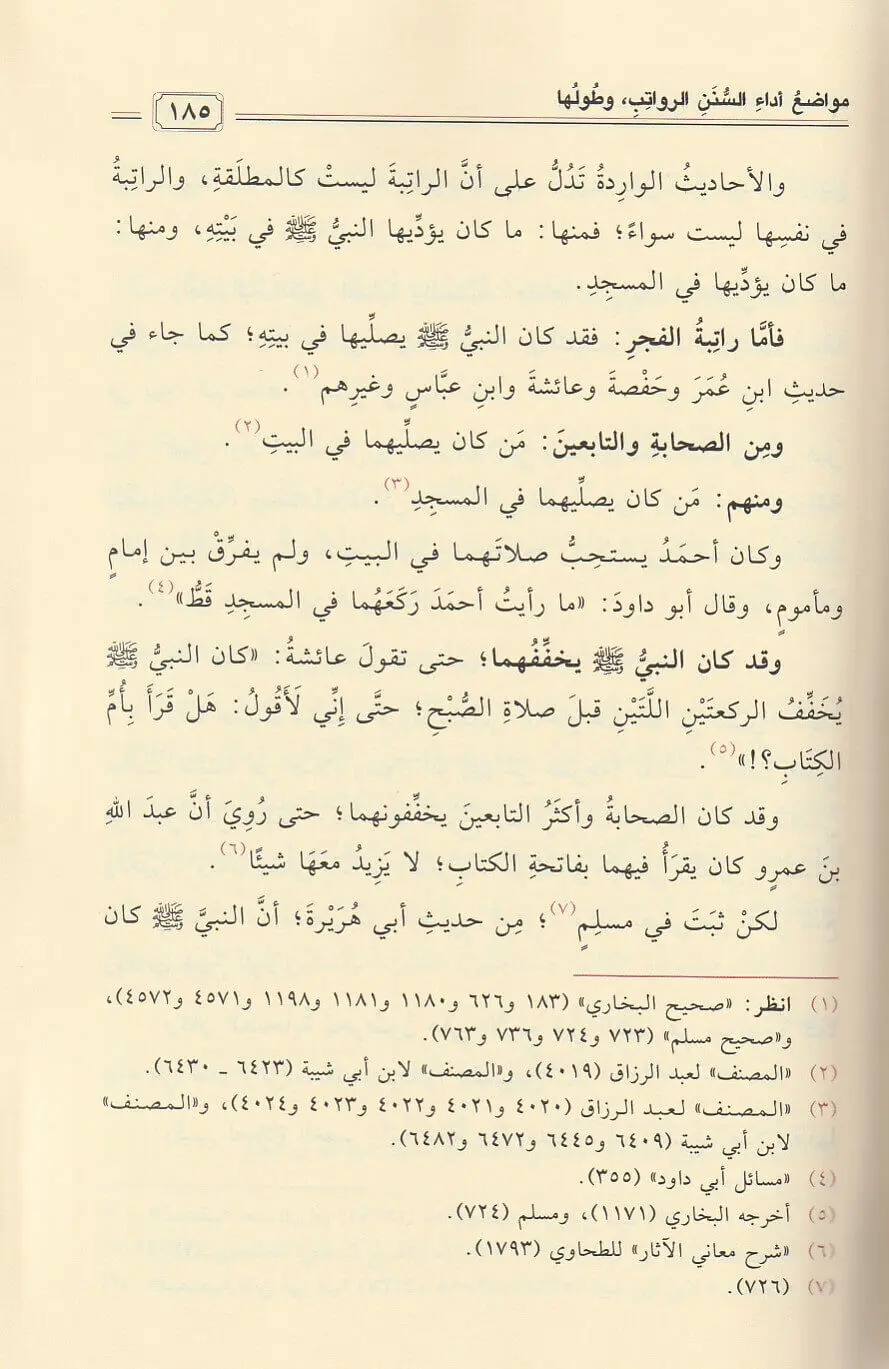 مواضعُ أداءِ السُّنَنِ الرواتِبِ، وطُولُها
١٨٥
والأحاديثُ الوارِدةُ تَدُلُّ على أنَّ الراتِبةَ ليستْ كالمطلَقةِ، والراتِبةُ
في نفسِها ليست سواءً؛ فمنها: ما كان يؤدِّيها النبيُّ ﷺ في بَيْتِهِ، ومنها:
ما كان يؤدِّيها في المسجِدِ.
فأمَّا راتِبةُ الفجرِ: فقد كان النبيُّ ﷺ يصلِّيها في بيتِهِ؛ كما جاء في
حديثِ ابنِ عُمَرَ وحَفْصةَ وعائشةَ وابنِ عبَّاسٍ وغيرِهم(١).
ومِن الصحابةِ والتابعينَ: مَن كان يصلِّيهما في البيتِ(٢).
ومنهم: مَن كان يصلِّيهما في المسجِدِ(٣).
وكان أحمَدُ يستحِبُّ صلاتَهما في البيتِ، ولم يفرِّقْ بين إمامٍ
ومأمومٍ، وقال أبو داودَ: «ما رأيتُ أحمَدَ رَكَعَهُما في المسجِدِ قَطُّ»(٤).
وقد كان النبيُّ ﷺ يخفِّفُهما؛ حتى تقولَ عائشةُ: «كان النبيُّ ﷺ
يُخَفِّفُ الركعتَيْنِ اللَّتَيْنِ قبلَ صلاةِ الصُّبْحِ؛ حتَّى إِنِّي لَأَقُولُ: هَلْ قَرَأَ بِأُمِّ
الكِتَابِ؟!»(٥).
وقد كان الصحابةُ وأكثَرُ التابعينَ يخفِّفونهما؛ حتى رُوِيَ أنَّ عبدَ اللهِ
بنَ عمرٍو كان يقرَأُ فيهما بفاتحةِ الكتابِ؛ لا يَزِيدُ معَهَا شيئًا(٦).
لكنْ ثبَتَ في مسلِمٍ(٧)؛ مِن حديثِ أبي هُرَيْرةَ؛ أنَّ النبيَّ ﷺ كان
(١) انظر: «صحيح البخاري» (١٨٣ و٦٢٦ و١١٨٠ و١١٨١ و١١٩٨ و٤٥٧١ و٤٥٧٢)،
و«صحيح مسلم» (٧٢٣ و٧٢٤ و٧٣٦ و٧٦٣).
(٢) «المصنف» لعبد الرزاق (٤٠١٩)، و«المصنف» لابن أبي شيبة (٦٤٢٣ ـ ٦٤٣٠).
(٣) «المصنف» لعبد الرزاق (٤٠٢٠ و٤٠٢١ و٤٠٢٢ و٤٠٢٣ و٤٠٢٤)، و«المصنف»
لابن أبي شيبة (٦٤٠٩ و٦٤٤٥ و٦٤٧٢ و٦٤٨٢).
(٤) «مسائل أبي داود» (٣٥٥).
(٥) أخرجه البخاري (١١٧١)، ومسلم (٧٢٤).
(٦) «شرح معاني الآثار» للطحاوي (١٧٩٣).
(٧) (٧٢٦).